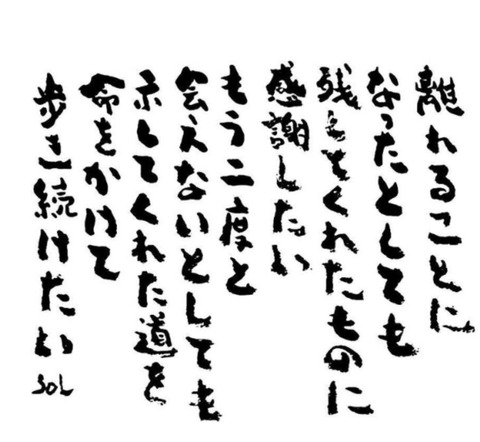 離れることに
なったとしても
残してくれたものに
感謝したい
もう二度と
会えないとしても
示してくれた道を
命をかけて
歩き続けたい
SOL